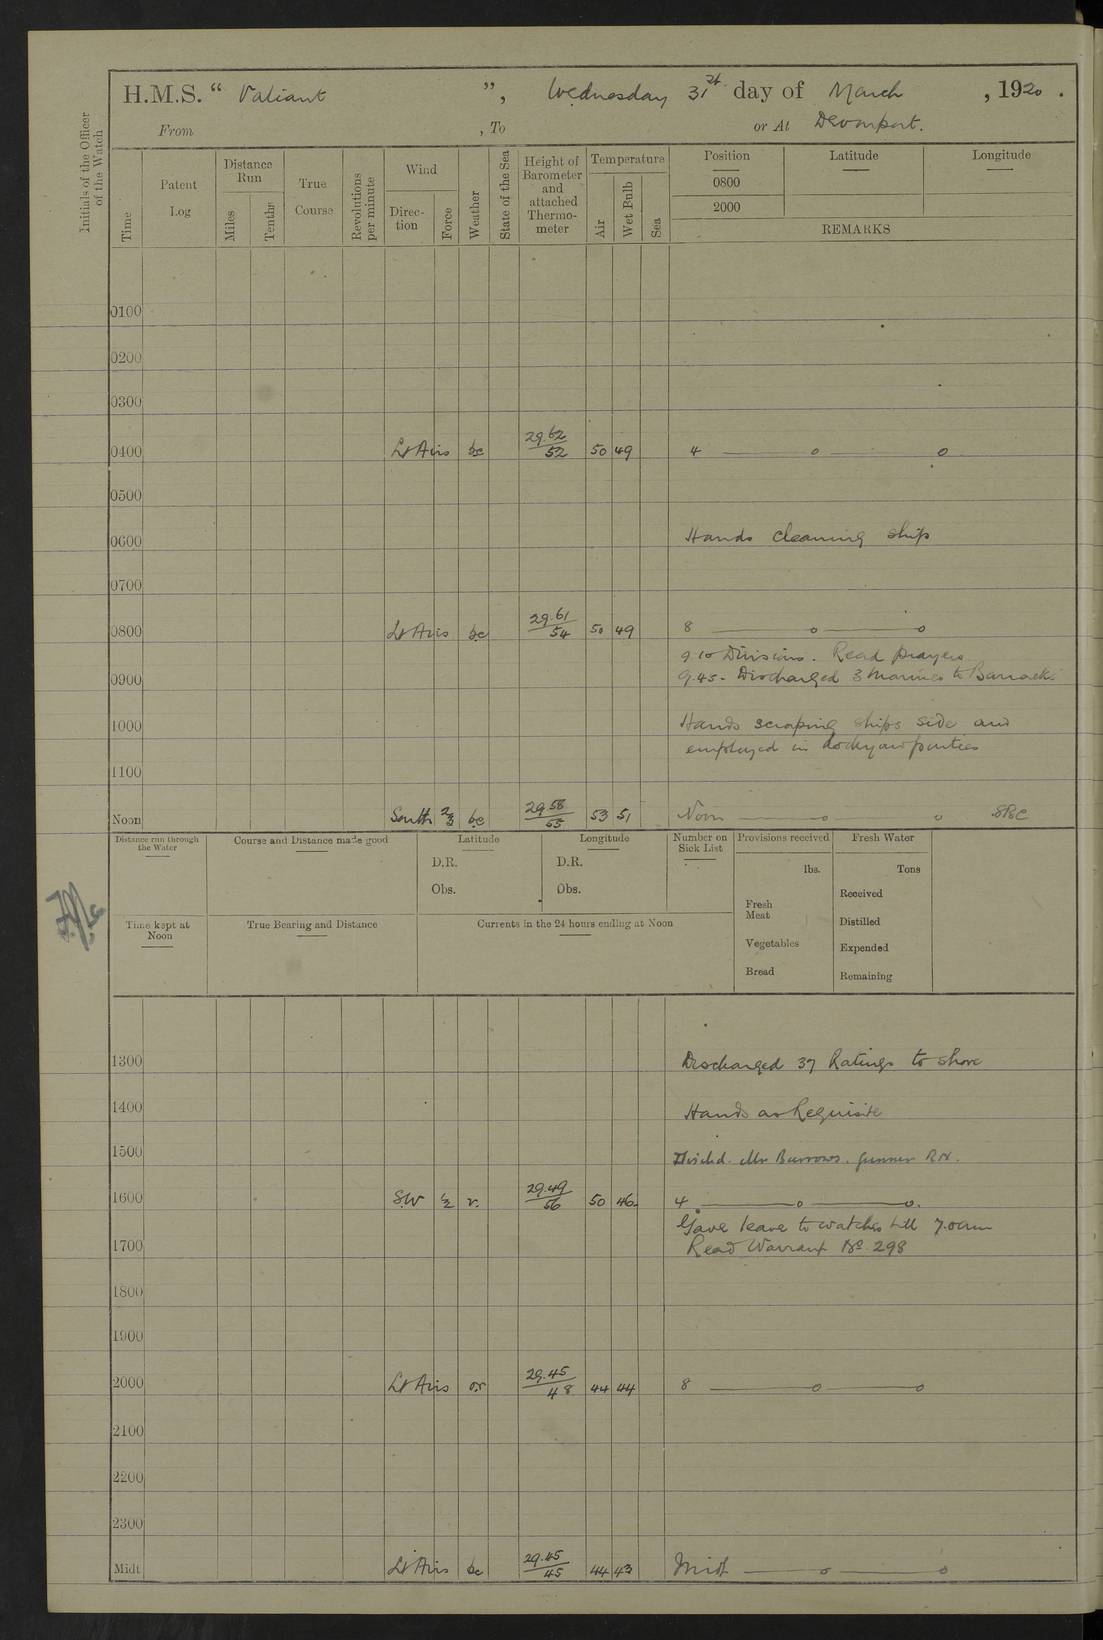 H.M.S. “ Valiant ”, Wednesday 31st day of March , 1920 .
From , To or At Devonport.
Initials of the Officer of the Watch
Time
Patent Log
Distance Run
Miles
Tenths
True Course
Revolutions per minute
Wind
Direc-tion
Force
Weather
State of the Sea
Height of Barometer and attached Thermo-meter
Temperature
Air
Wet Bulb
Sea
Position
0800
2000
Latitude
Longitude
REMARKS
0100
0200
0300
0400 Lt Airs bc 29.62/52 50 49 4 —o—o
0500
0600 Hands cleaning ship
0700
0800 Lt Airs bc 29.61/54 50 49 8 —o—o
9.10 Divisions. Read prayers
0900 9.45 - Discharged 3 Marines to Barracks.
1000 Hands scraping ships side and
employed in dockyard parties
1100
Noon South 2/3 bc 29.58/55 53 51 Noon —o—o
Distance run through the Water
Course and Distance made good
Latitude
D.R.
Obs.
Longitude
D.R.
Obs.
Number on Sick List
Provisions received
lbs.
Fresh Meat
Vegetables
Bread
Fresh Water
Tons
Received
Distilled
Expended
Remaining
Time kept at Noon
True Bearing and Distance
Currents in the 24 hours ending at Noon
1300 Discharged 37 Ratings to shore
1400 Hands as Requisite
1500 Dischd. Mr Burrows. Gunner RN.
1600 S.W ½ r. 29.49/56 50 46 4 —o—o.
Gave leave to watches till 7.0am
1700 Read Warrant No 298
1800
1900
2000 Lt Airs or 29.45/48 44 44 8 —o—o
2100
2200
2300
Midt Lt Airs bc 29.45/45 44 43 Midt —o—o